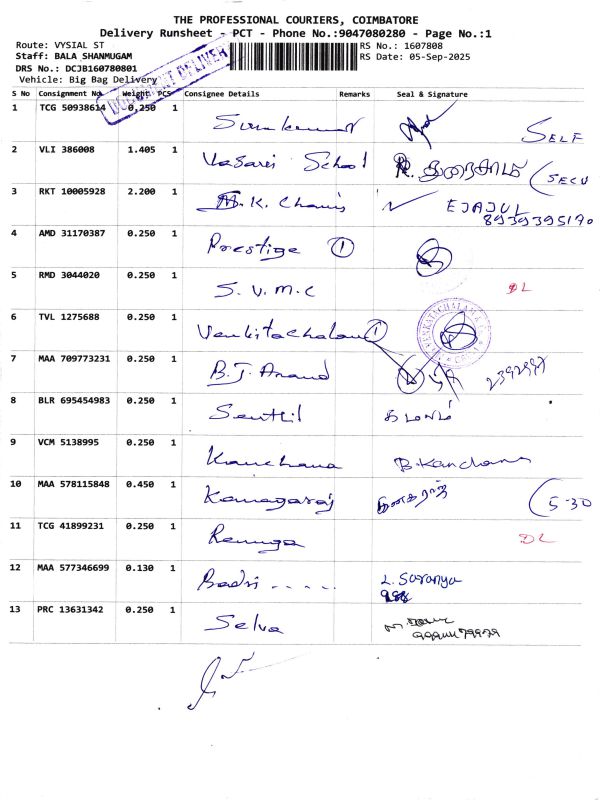 THE PROFESSIONAL COURIERS, COIMBATORE
Delivery Runsheet - PCT - Phone No.:9047080280 - Page No.:1
Route: VYSIAL ST RS No.: 1607808
Staff: BALA SHANMUGAM RS Date: 05-Sep-2025
DRS No.: DCJB160780801
Vehicle: Big Bag Delivery
DOCUMENT DELIVER
S No Consignment No Weight PCS Consignee Details Remarks Seal & Signature
1 TCG 50938614 0.250 1 SELF
2 VLI 386008 1.405 1 Vasavi School (SECU
3 RKT 10005928 2.200 1 M.K. EJAJUL
8939395170
4 AMD 31170387 0.250 1 Prestige 1
5 RMD 3044020 0.250 1 S.V.M.C DL
6 TVL 1275688 0.250 1 Venkitachalam 1
7 MAA 709773231 0.250 1 B.J. Anand
8 BLR 695454983 0.250 1 Senthil
9 VCM 5138995 0.250 1 Kanchana B.Kanchana
10 MAA 578115848 0.450 1 Kamagaraj (5-30
11 TCG 41899231 0.250 1 Renuga DL
12 MAA 577346699 0.130 1 Badri ..... L. Saranya
13 PRC 13631342 0.250 1 Selva